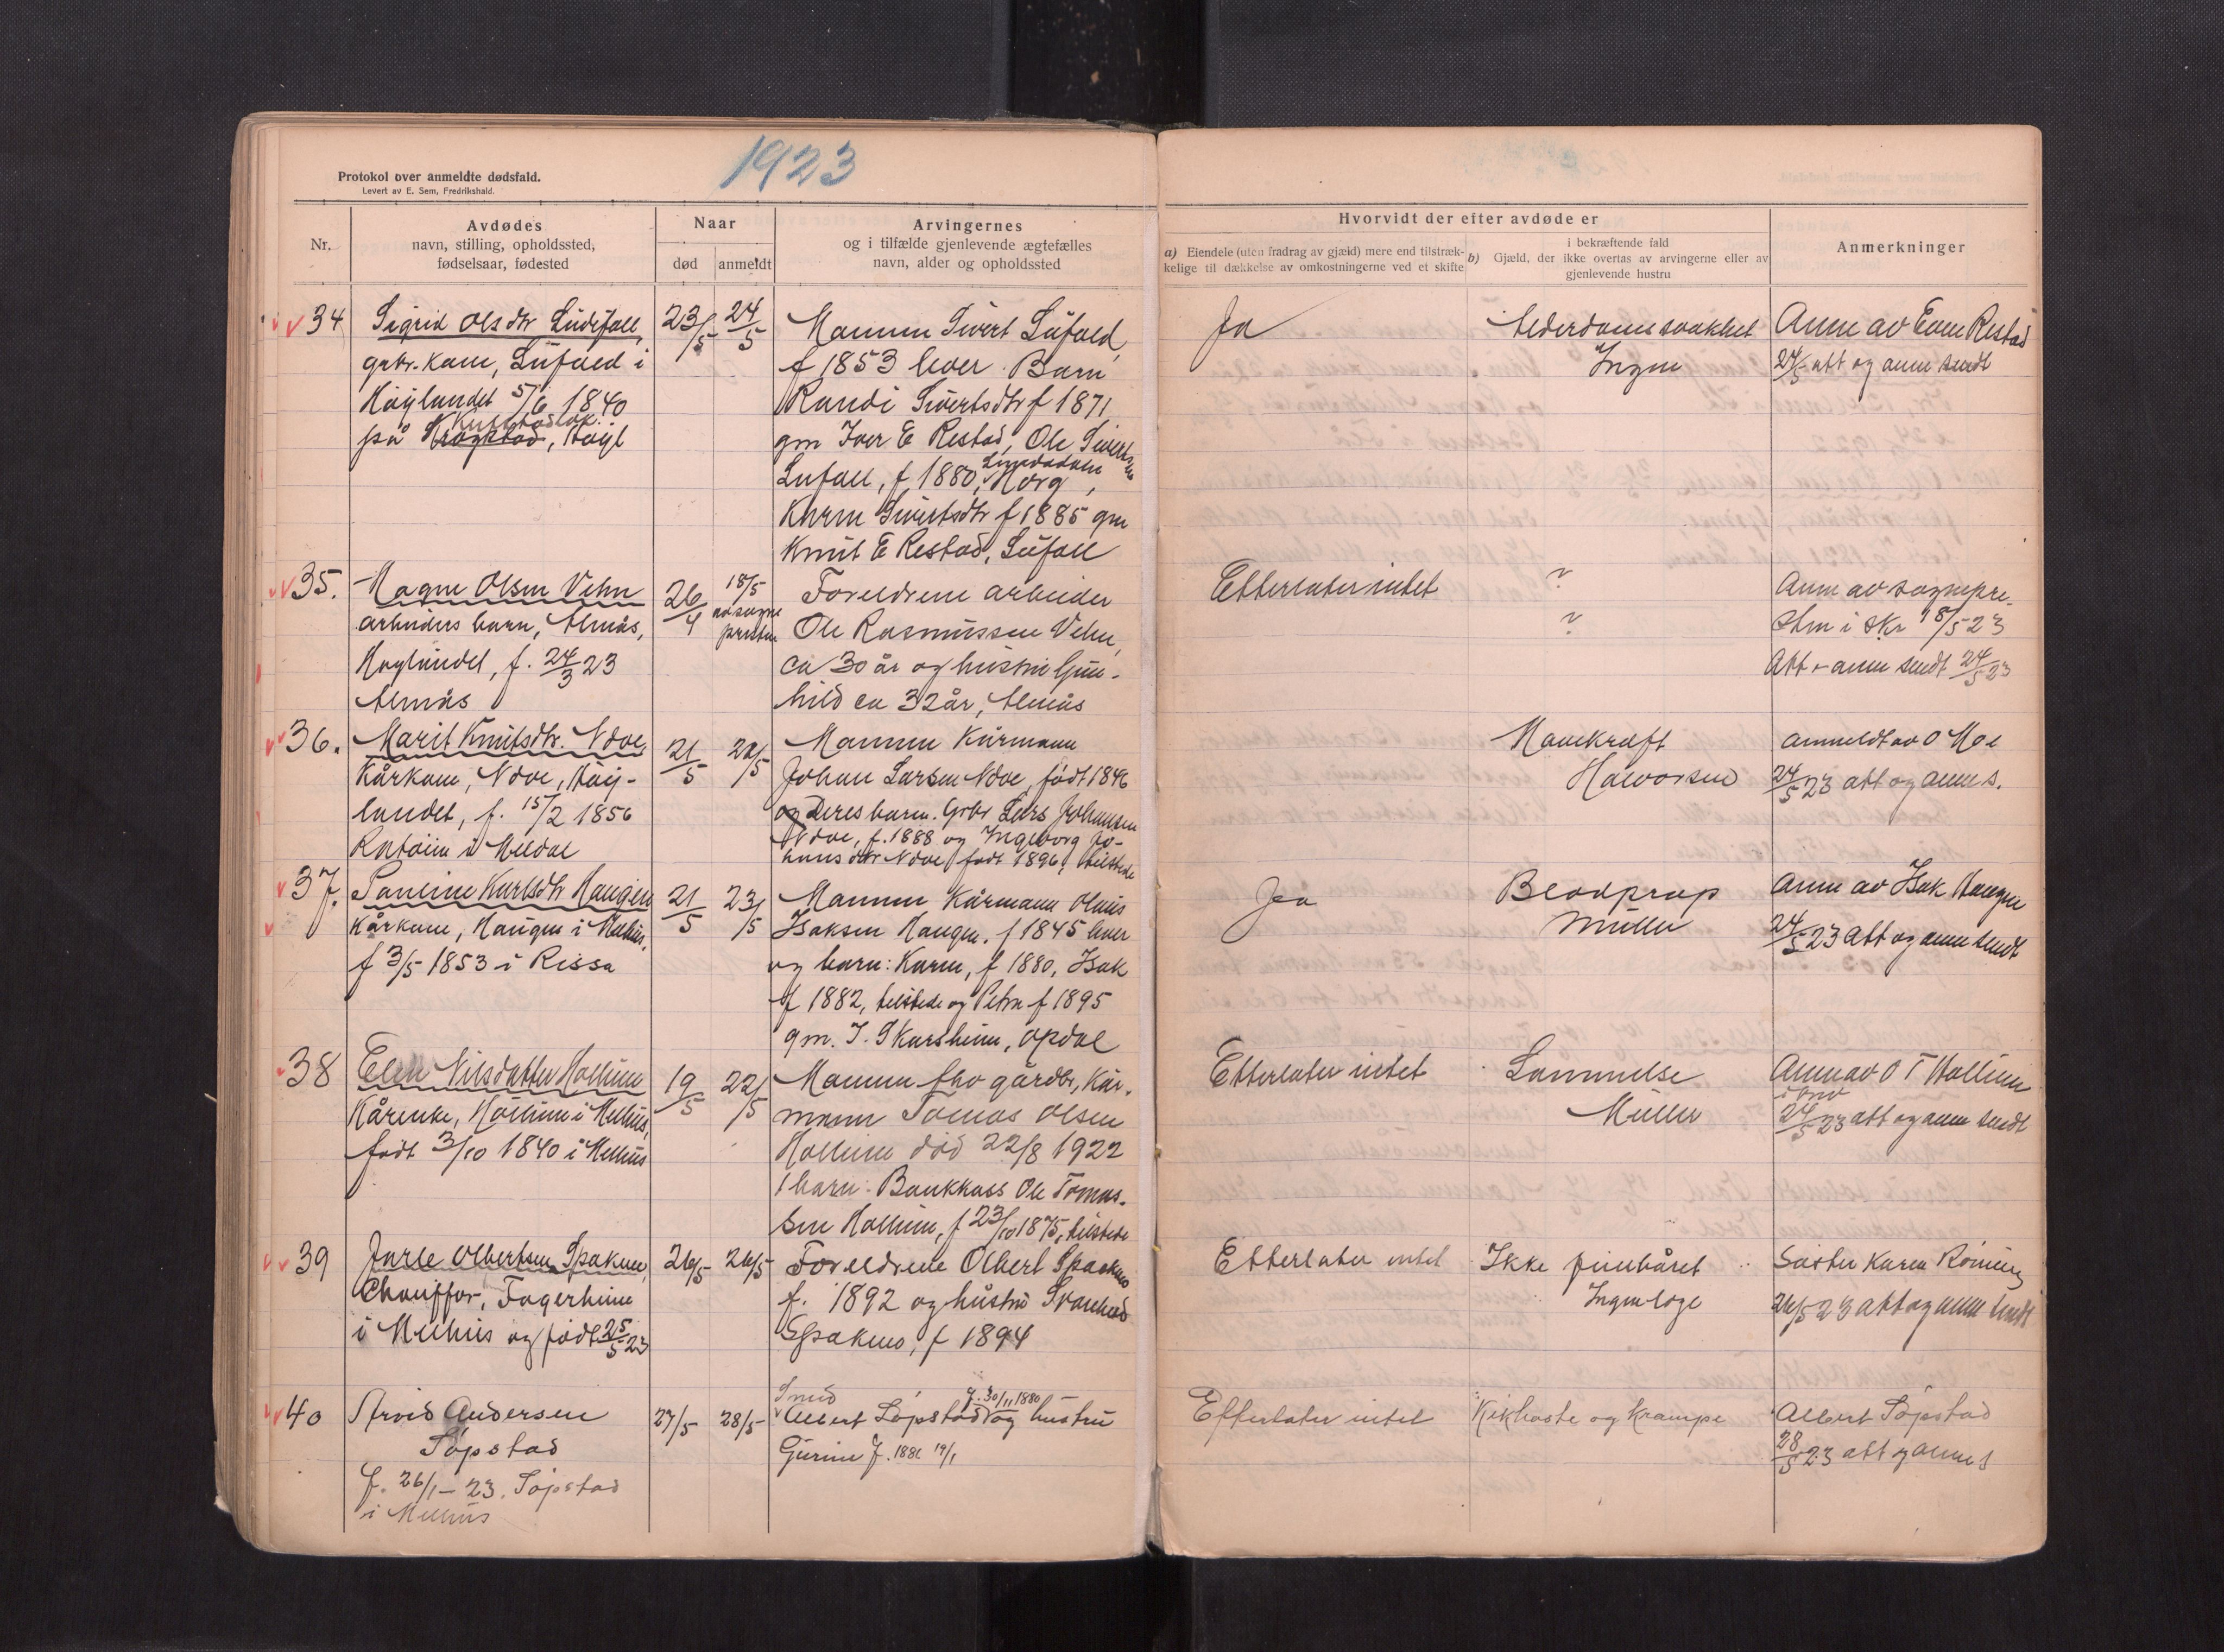 1923
Protokol over anmeldte dødsfald.
Levert av E. Sem, Fredrikshald.
Nr.
Avdødes
navn, stilling, opholdssted,
fødselsaar, fødested
Naar
død
anmeldt
Arvingernes
og i tilfælde gjenlevende ægtefælles
navn, alder og opholdssted
Hvorvidt der efter avdøde er
a) Eiendele (uten fradrag av gjæld) mere end tilstræk-
kelige til dækkelse av omkostningerne ved et skifte
i bekræftende fald
b) Gjæld, der ikke overtas av arvingerne eller av
gjenlevende hustru
Anmerkninger
34
Sigrid Olsdtr
grbr. kone, i
Høylandet 5/6 1840
på Høyl
23/5
24/5
Mannen Sivert
f 1853 lever. Barn
Randi Sivertsdtr f 1871
gm Iver E Restad, Ole Sivertsen
f 1880,
Karen Sivertsdtr f 1885 gm
Knut E Restad,
Ja
Alderdomssvakhet
Ingen
Anm av Even Restad
24/5 att og anm sendt
35.
Magne Olsen
arbeiders barn, Almås,
Høylandet, f. 24/3 23
Almås
26/4
18/5
av sogne
presten
Foreldrene arbeider
Ole Rasmussen
ca 30 år og hustru Gun-
hild ca 32 år, Almås
Etterlater intet
?
?
Anm av sognepre-
sten i skr 18/5 23
Att + anm sendt 24/5 23
36.
Marit Knutsdtr.
Kårkone, Høy-
landet, f. 15/2 1856
i Meldal
21/5
22/5
Mannen Kårmann
Johan Larsen født 1846
og deres barn. Grbr Lars Johansen
f. 1888 og Ingeborg Jo-
hansdtr født 1896, tilstede
Mavekræft
Halvorsen
anmeldt av O Moe
24/5 23 att og anm s.
37.
Pauline Karlsdtr Haugen
Kårkone, Haugen i Melhus.
f 3/5 1853 i Rissa
21/5
23/5
Mannen Kårmann
Isaksen Haugen. f 1845 lever
og barn: Karen, f 1880, Isak
f 1882, tilstede og Petra f 1895
gm. J. Skarsheim, Opdal
Ja
Blodprop
Müller
Anm av Isak Haugen
24/5 23 att og anm sendt
38
Elen Nilsdatter Hollum
Kårenke, Hollum i Melhus,
født 3/10 1840 i Melhus
19/5
22/5
Mannen fhv gårdbr, Kår-
mann Tomas Olsen
Hollum død 22/8 1922
1 barn: Bankkass Ole Tomas-
sen Hollum, f 23/10 1875, tilstede
Etterlater intet
Lammelse
Müller
Anm av O T Hollum
24/5 23 att og anm sendt
39
Jarle Olbertsen Spakmo,
Chauffør, Fagerheim
i Melhus og født 25/5 23
26/5
26/5
Foreldrene Olbert Spakmo
f. 1892 og hustru Svanhild
Spakmo, f 1894
Etterlater intet
Ikke fuldbåret
Ingen læge
Søster Karen
26/5 23 att og anm sendt
40
Arvid Andersen
Söpstad
f. 26/1 - 23. Söpstad
i Melhus
27/5
28/5
Smed f. 30/11 1880
Albert Söpstad og hustru
Gurine f. 1881 19/1
Efterlater intet
Kikhoste og krampe
Albert Söpstad
28/5 23 att og anm s